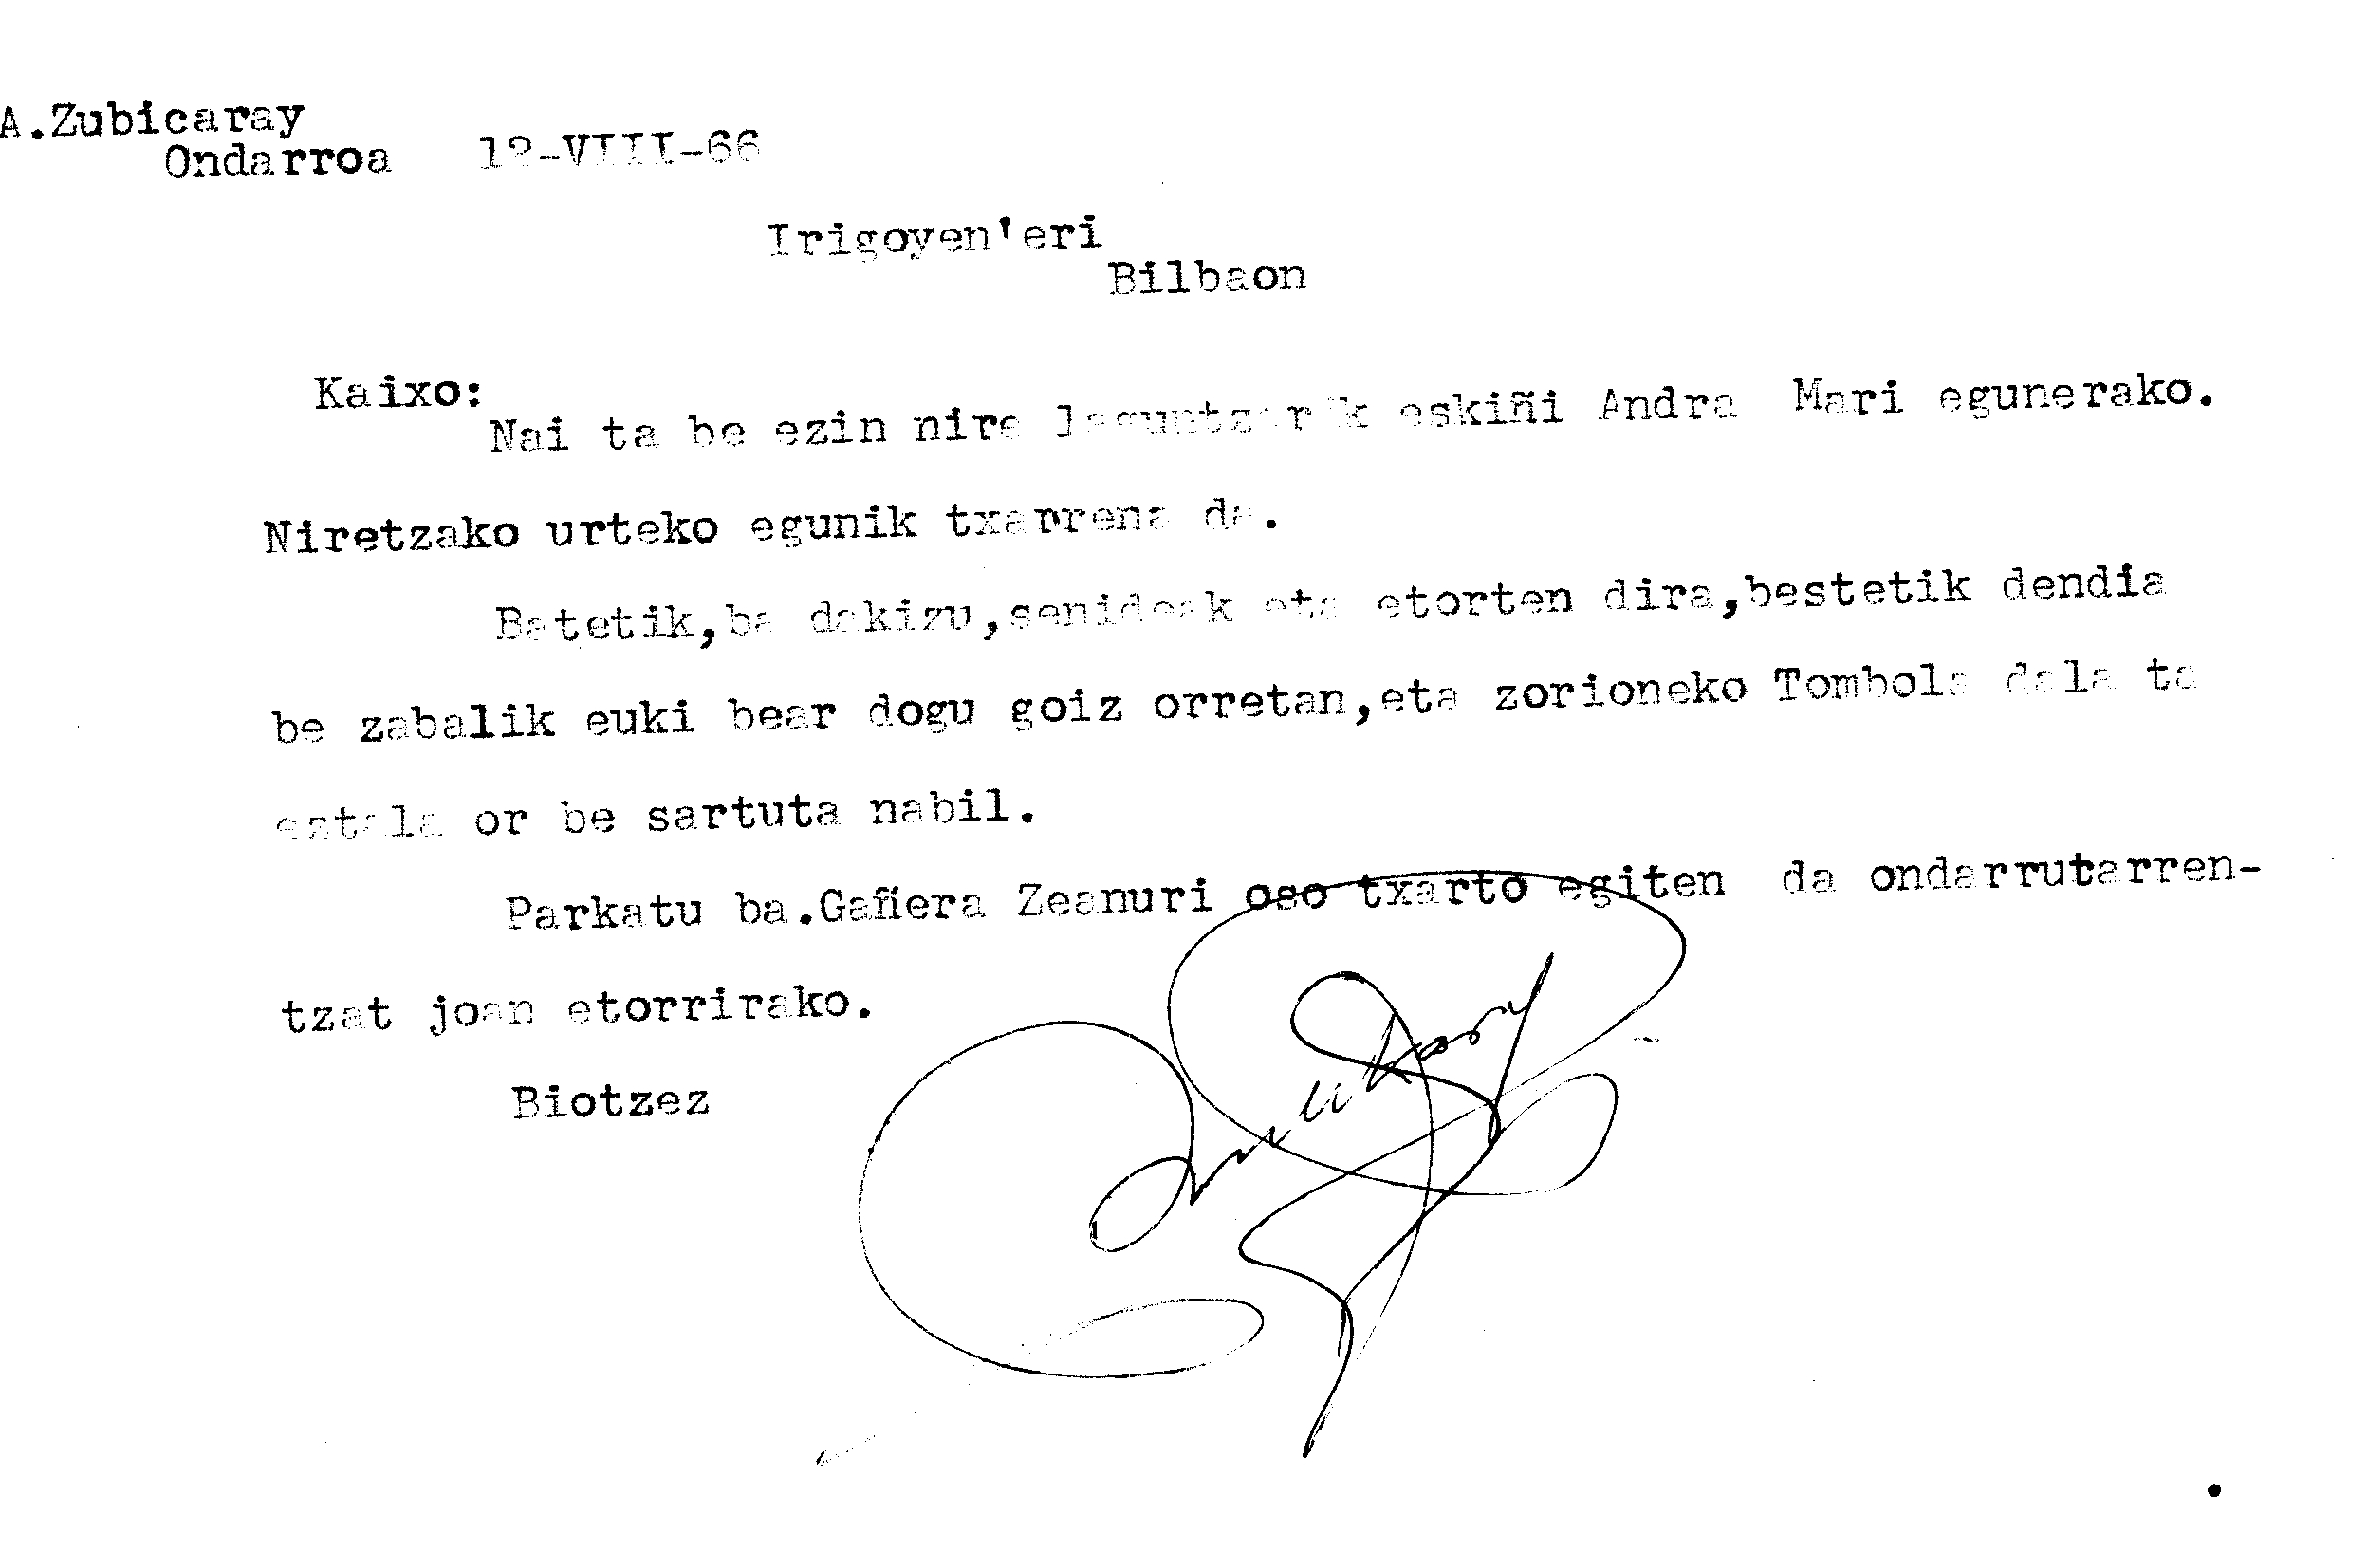 A.Zubicaray
Ondarroa 12-VIII-66
Irigoyen'eri
Bilbaon
Kaixo:
Nai ta be ezin nire laguntzarik eskiñi Andra Mari egunerako.
Niretzako urteko egunik txarrena da.
Batetik,ba dakizu,senideak eta etorten dira,bestetik dendia
be zabalik euki bear dogu goiz orretan,eta zorioneko Tombola dala ta
eztala or be sartuta nabil.
Parkatu ba.Gañera Zeanuri oso txarto egiten da ondarrutarren-
tzat joan etorrirako.
Biotzez